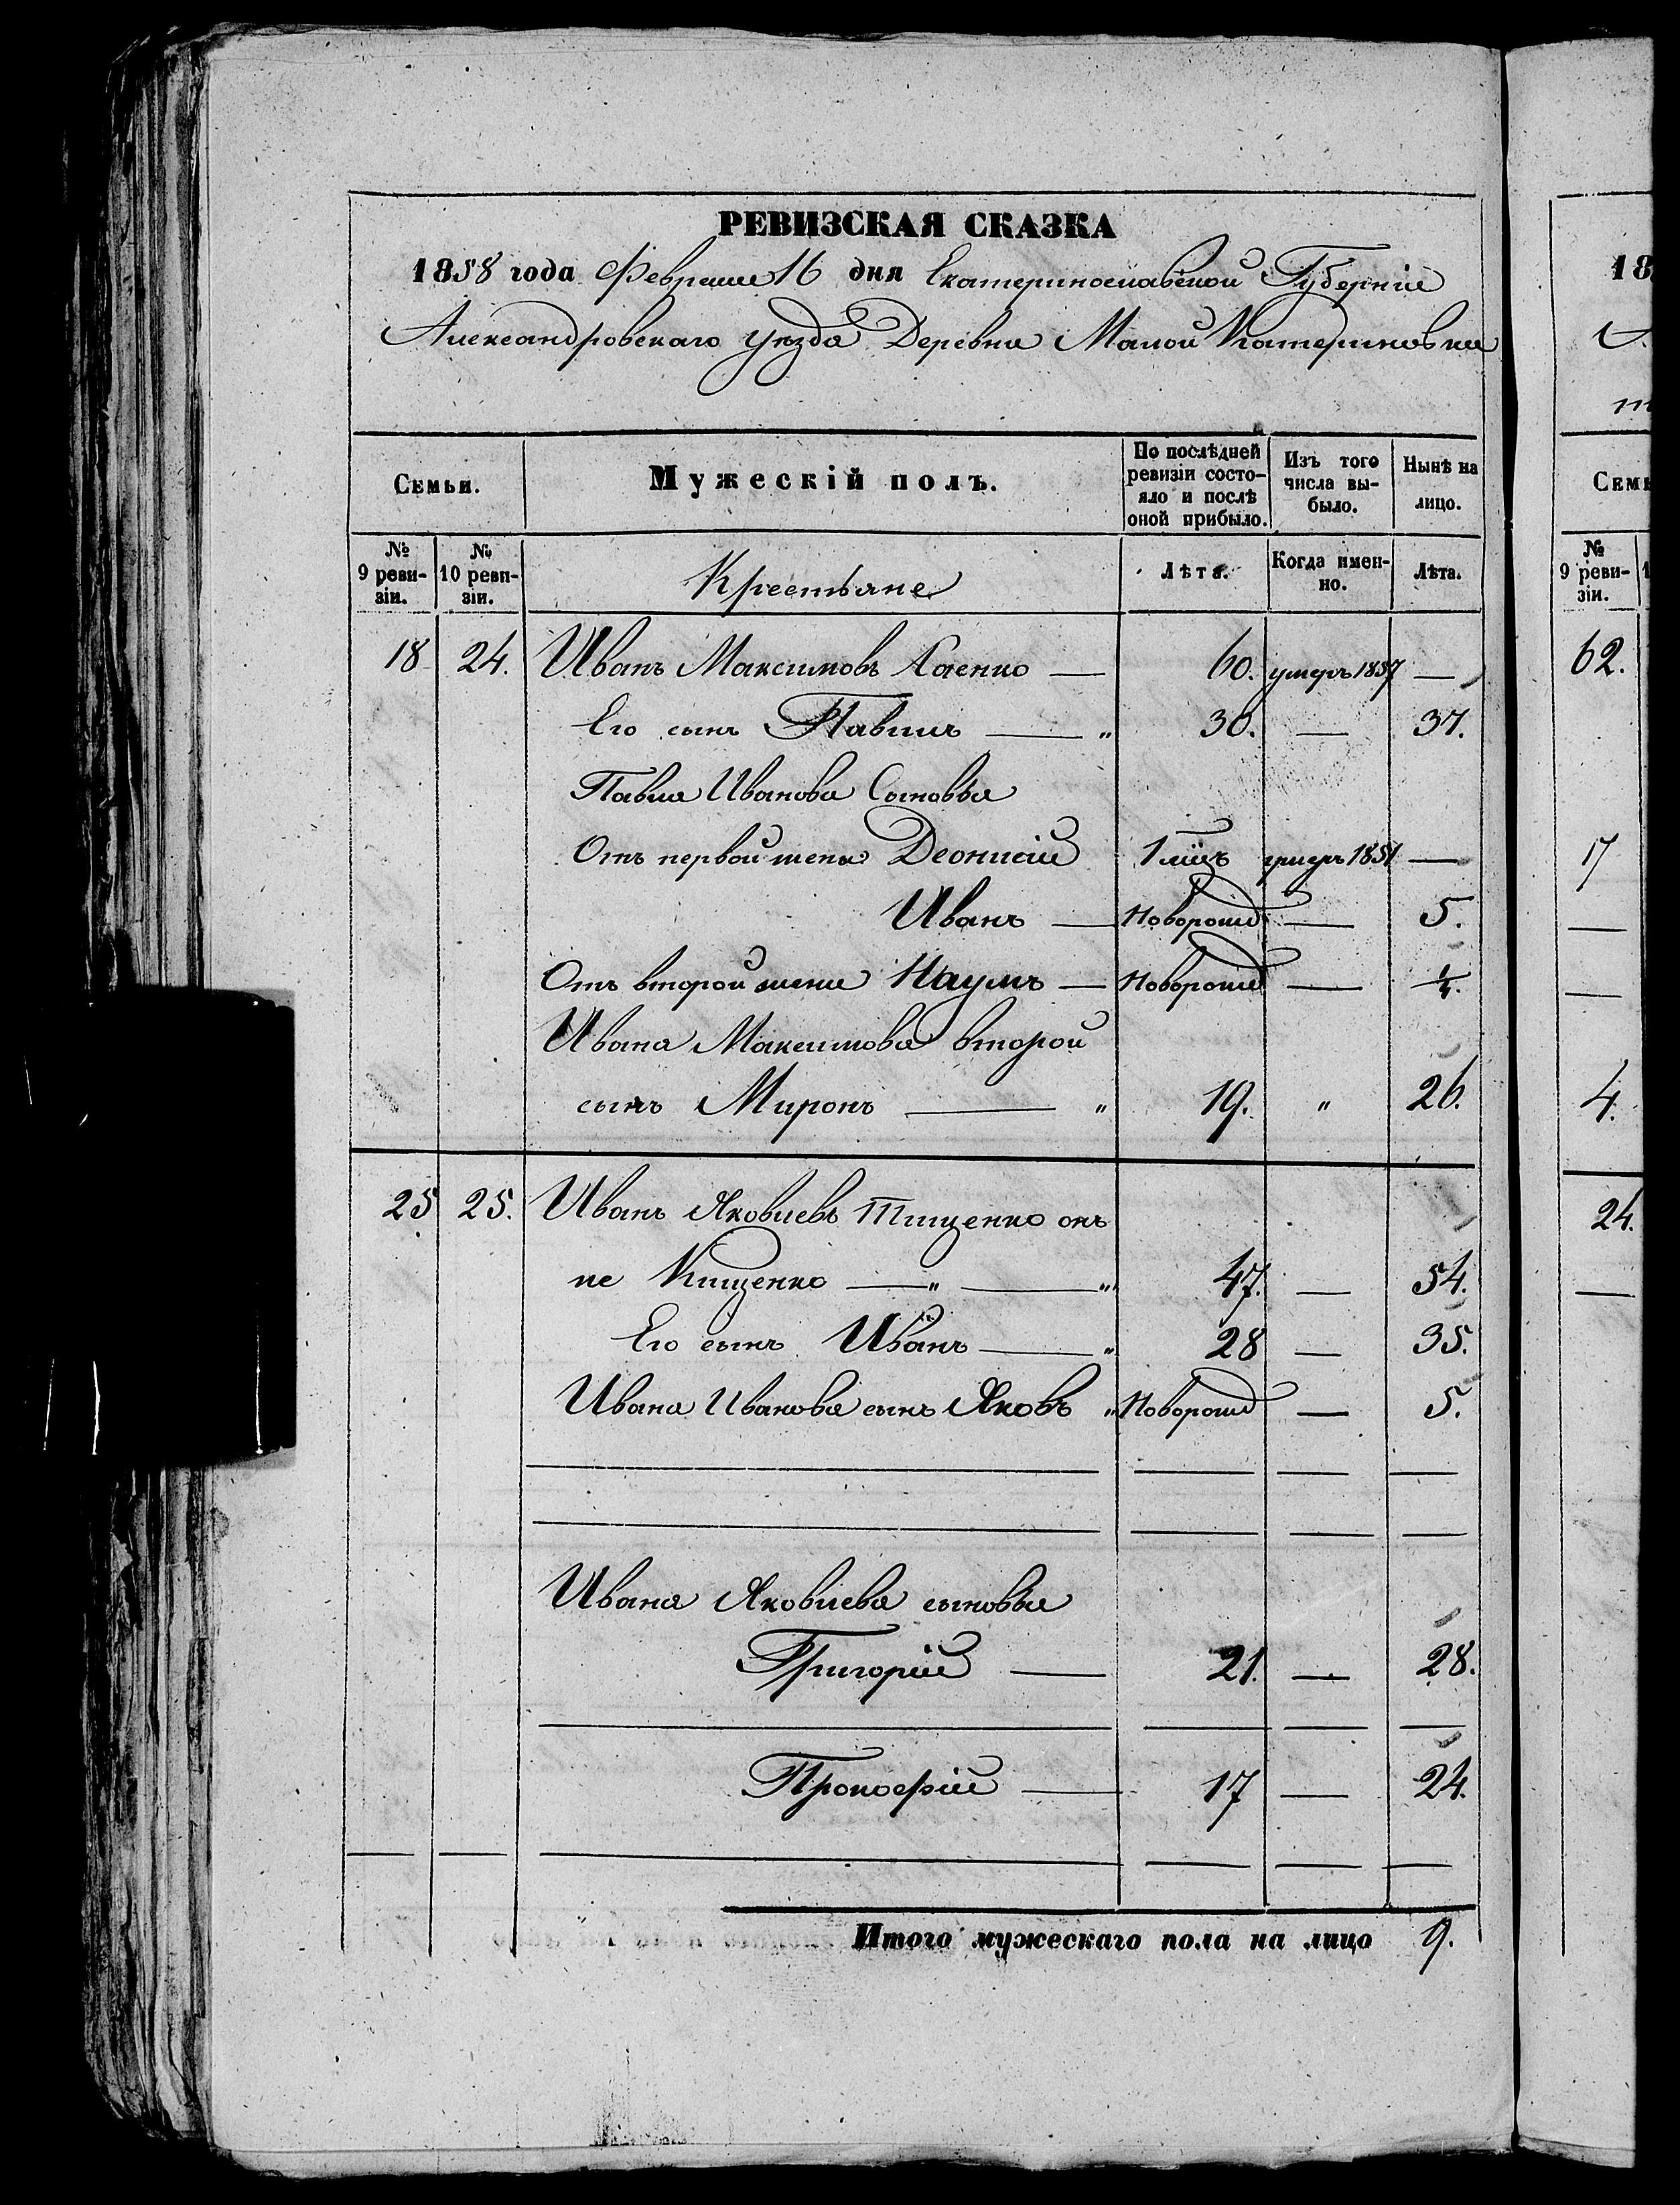 РЕВИЗСКАЯ СКАЗКА
1858 года Февраля 16 дня Екатеринославской Губернiи
Александровскаго уѣзда Деревни Малой Катериновки
Семьи.
Мужескiй полъ.
По послѣдней ревизiи состояло и послѣ оной прибыло.
Изъ того числа выбыло.
Нынѣ на лицо.
№ 9 ревизiи.
№ 10 ревизiи.
Крестьяне
Лѣта.
Когда именно.
Лѣта.
18 24. Иванъ Максимовъ Саенко — 60. умеръ 1857 —
Его сынъ Павилъ — „ 30. — 37.
Павла Иванова Сыновья
Отъ первой жены Деонисiй 1 мѣц умеръ 1851 —
Иванъ — Новорожд — 5.
Отъ второй жены Наумъ — Новорожд — 1/4.
Ивана Максимова второй
сынъ Миронъ — „ 19. „ 26.
25 25. Иванъ Яковлевъ Тищенко онъ
же Кищенко — „ — „ 47. — 54.
Его сынъ Иванъ — „ 28 — 35.
Ивана Иванова сынъ Яковъ „ Новорожд — 5.
Ивана Яковлева сыновья
Григорiй — 21. — 28.
Прокофiй — 17 — 24.
Итого мужескаго пола на лицо 9.
18
Семь
№ 9 ревизiи.
62.
17
4.
24.